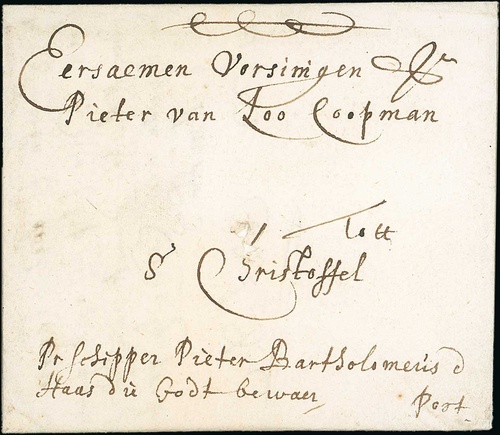 Eersaemen Vorsinigen Jr
Pieter van Loo Coopman
Tott
St Christoffel
Pr Schipper Pieter Bartholomeus d
Haas die Godt bewaer
Port